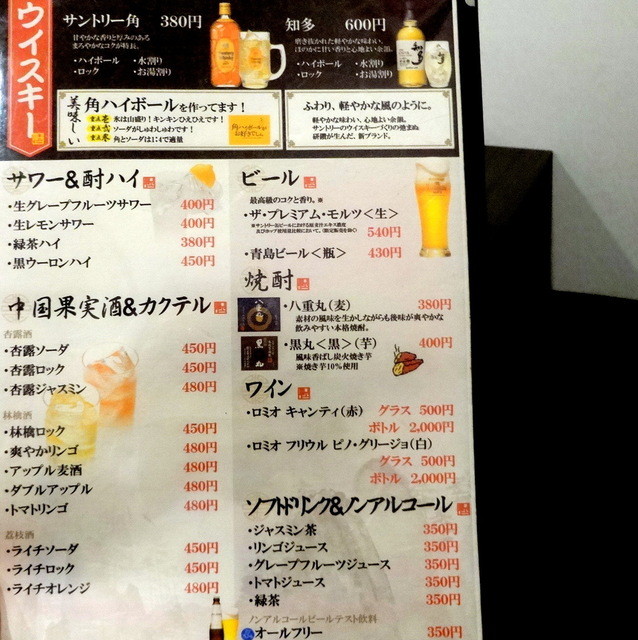 ウイスキー
サントリー角 380円
甘やかな香りと厚みのある
まろやかなコクが特長。
・ハイボール ・水割り
・ロック ・お湯割り
知多 600円
磨き抜かれた軽やかな味わい、
ほのかに甘い香りと心地よい余韻。
・ハイボール ・水割り
・ロック ・お湯割り
美味しい
角ハイボールを作ってます!
重点壱 氷は山盛り!キンキンひえひえです!
重点弐 ソーダがしゅわしゅわです!
重点参 角とソーダは1:4で適量
角ハイボールがお好きでしょ。
ふわり、軽やかな風のように。
軽やかな味わい、心地よい余韻。
サントリーのウイスキーづくりの弛まぬ
研鑽が生んだ、新ブランド。
サワー&酎ハイ
・生グレープフルーツサワー 400円
・生レモンサワー 400円
・緑茶ハイ 380円
・黒ウーロンハイ 450円
中国果実酒&カクテル
杏露酒
・杏露ソーダ 450円
・杏露ロック 450円
・杏露ジャスミン 480円
林檎酒
・林檎ロック 450円
・爽やかリンゴ 480円
・アップル麦酒 480円
・ダブルアップル 480円
・トマトリンゴ 480円
荔枝酒
・ライチソーダ 450円
・ライチロック 450円
・ライチオレンジ 480円
ビール
最高級のコクと香り。※
・ザ・プレミアム・モルツ<生>
540円
・青島ビール<瓶> 430円
焼酎
・八重丸(麦) 380円
素材の風味を生かしながらも後味が爽やかな
飲みやすい本格焼酎。
黒丸
・黒丸<黒>(芋) 400円
風味香ばし炭火焼き芋
※焼き芋10%使用
ワイン
・ロミオ キャンティ(赤) グラス 500円
ボトル 2,000円
・ロミオ フリウル ピノ・グリージョ(白)
グラス 500円
ボトル 2,000円
ソフトドリンク&ノンアルコール
・ジャスミン茶 350円
・リンゴジュース 350円
・グレープフルーツジュース 350円
・トマトジュース 350円
・緑茶 350円
ノンアルコールビールテスト飲料
オールフリー 350円